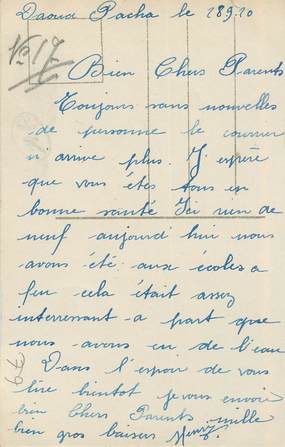 Daoud Pacha le 28 9.20
No 17
Bien Chers Parents
Toujours sans nouvelles
de personne le courrier
n'arrive plus. J'espère
que vous étes tous en
bonne santé Ici rien de
neuf aujourd'hui nous
avons été aux écoles a
feu cela était assez
interressant a part que
nous avons eu de l'eau
Dans l'espoir de vous
lire bientot je vous envoie
bien Chers Parents mille
bien gros baisers Henry